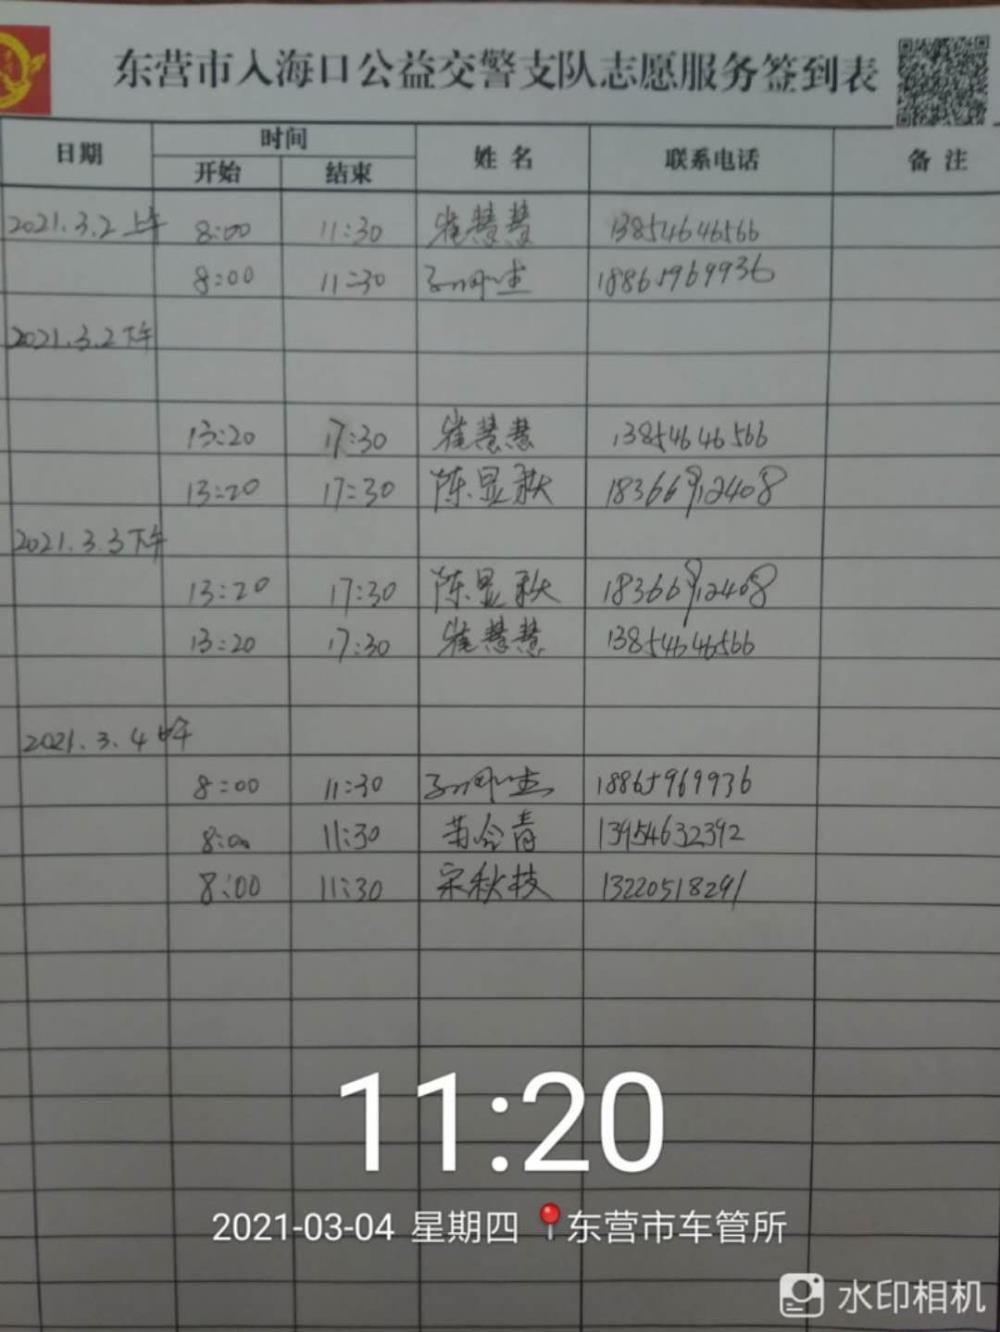 东营市入海口公益交警支队志愿服务签到表
日期 时间 姓名 联系电话 备注
开始 结束
2021.3.2上午 8:00 11:30 崔慧慧 13854646566
8:00 11:30 18865969936
2021.3.2下午
13:20 17:30 崔慧慧 13854646566
13:20 17:30 陈显秋 18366912408
2021.3.3下午
13:20 17:30 陈显秋 18366912408
13:20 17:30 崔慧慧 13854646566
2021.3.4
8:00 11:30 18865969936
8:00 11:30 13954632392
8:00 11:30 宋秋枝 13220518291
11:20
2021-03-04 星期四 东营市车管所
水印相机